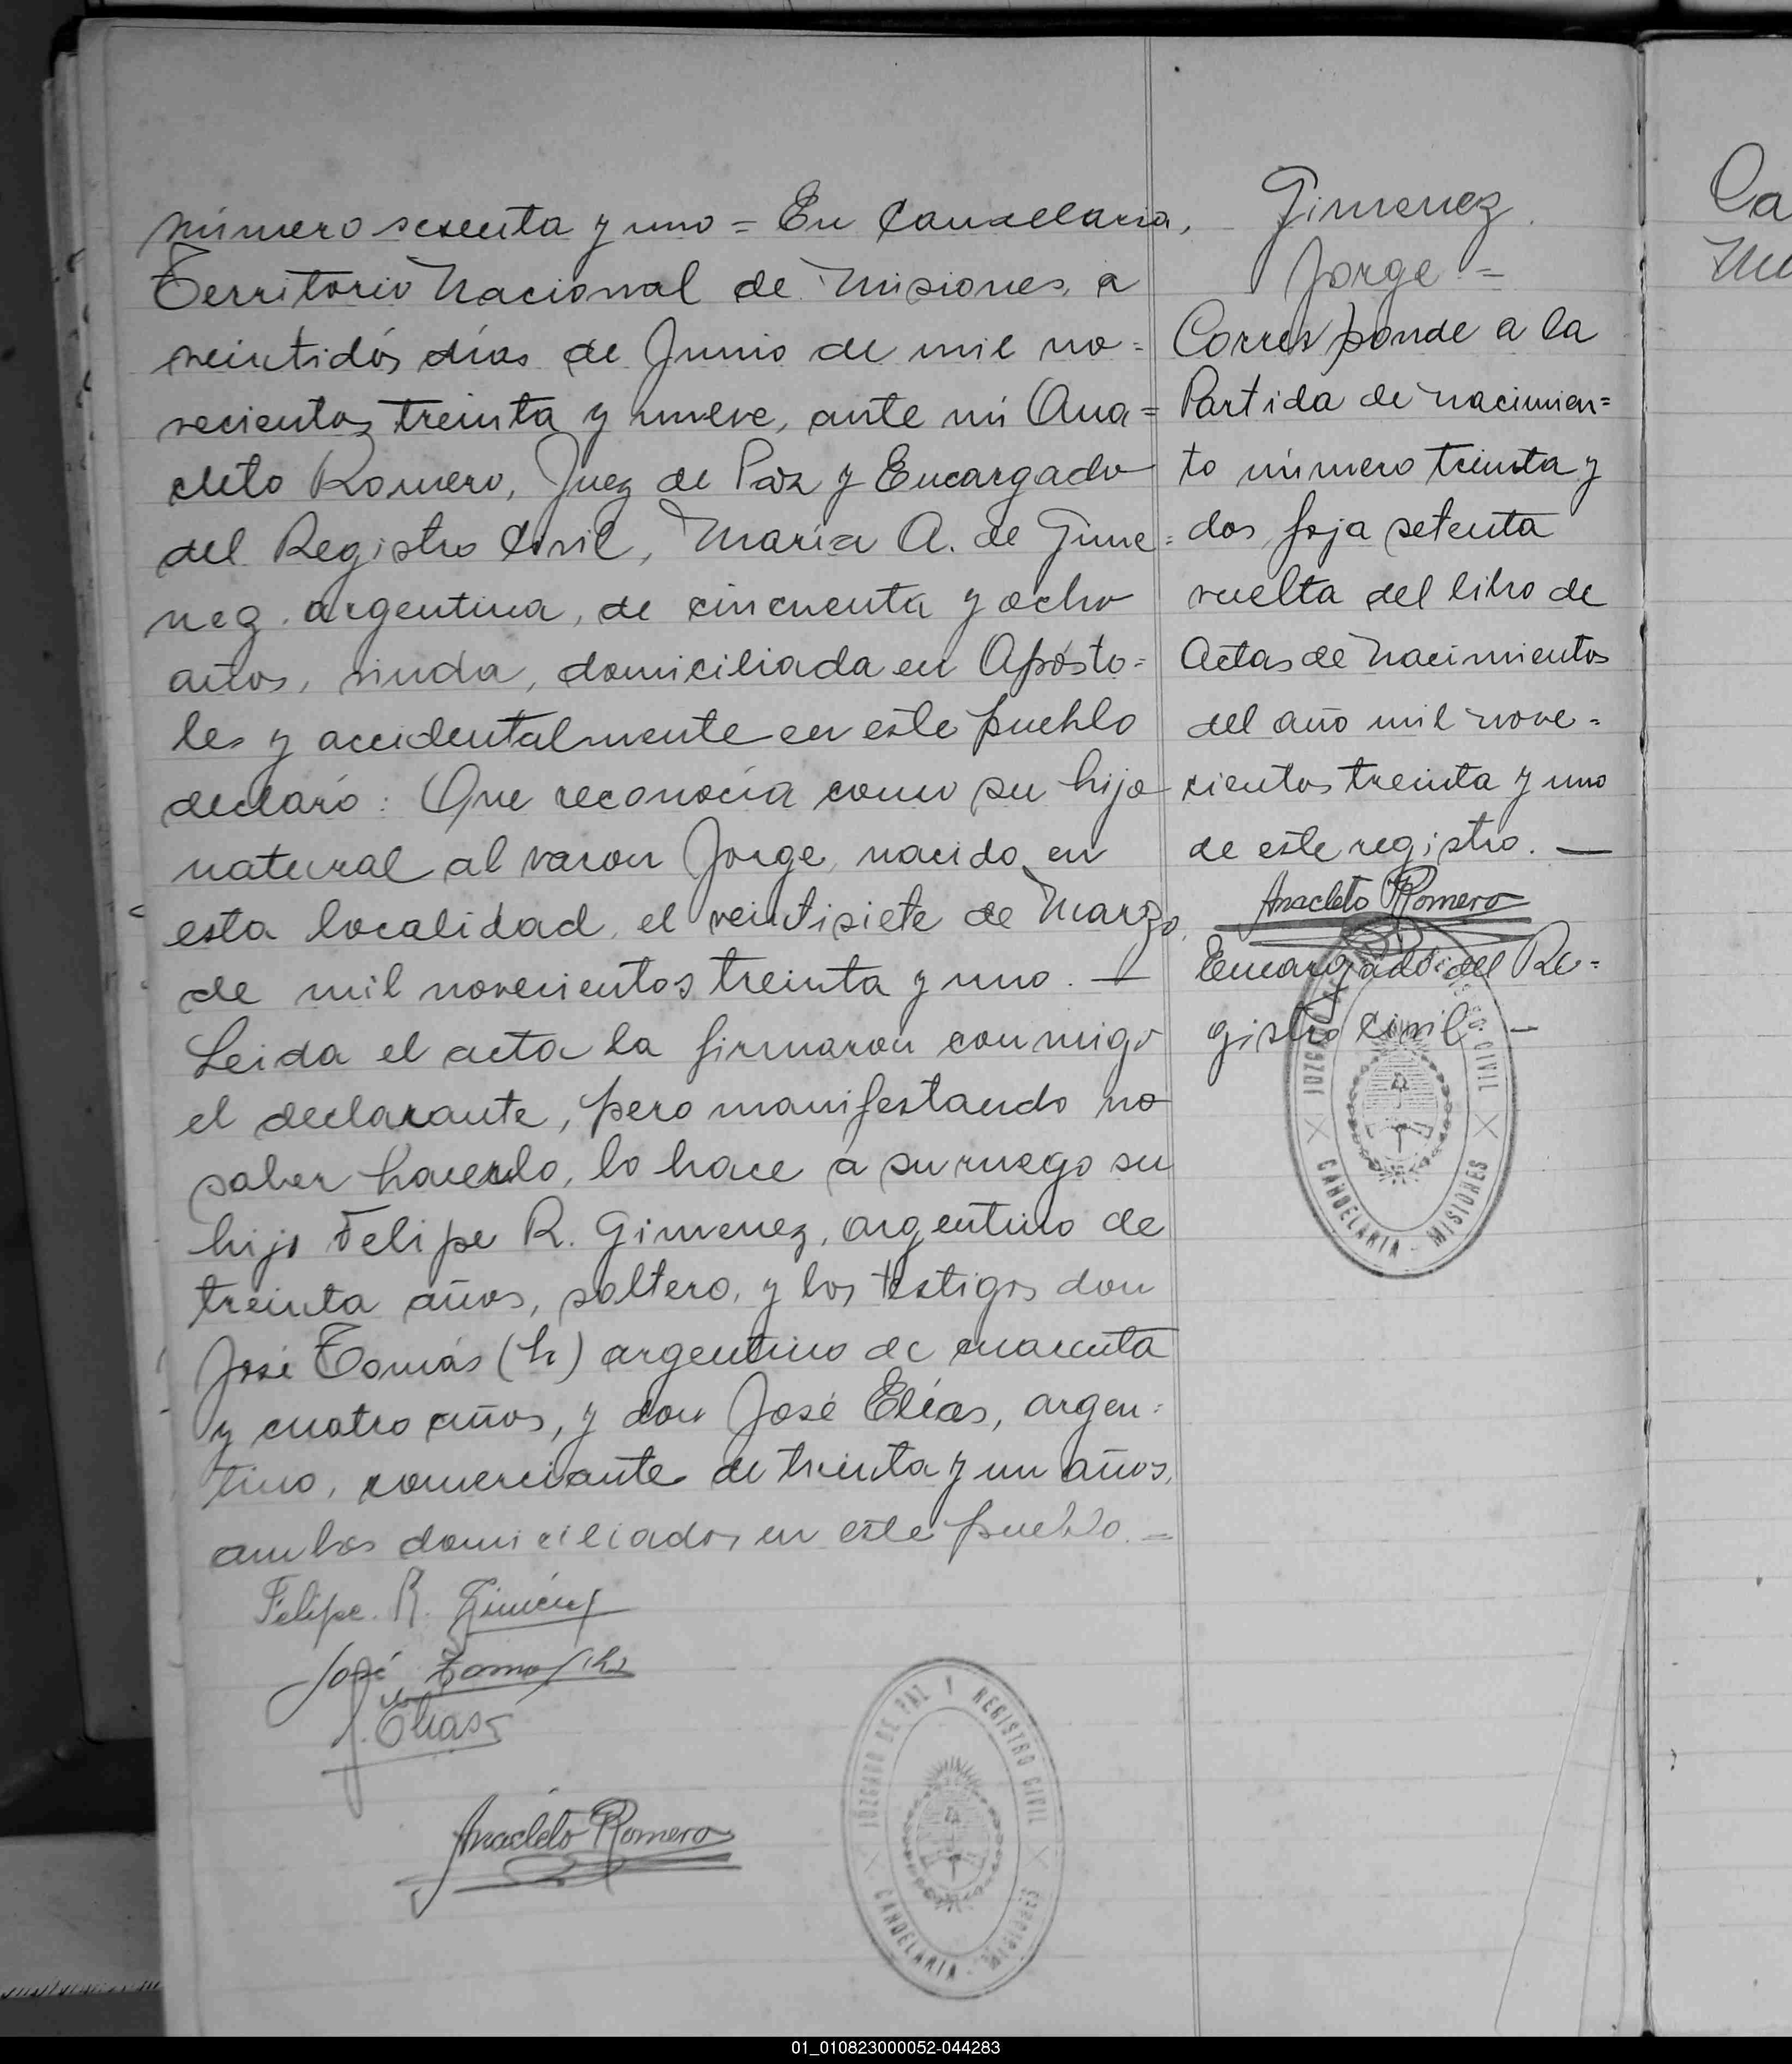 número sesenta y uno = En Candelaria,
Territorio Nacional de Misiones, a
veintidós días de Junio de mil no=
vecientos treinta y nueve, ante mi Ana=
cleto Romero, Juez de Paz y Encargado
del Registro Civil, María A. de Gime=
nez, argentina, de cincuenta y ocho
años, viuda, domiciliada en Aposto=
les y accidentalmente en este pueblo
declaró: Que reconocía como su hijo
natural al varon Jorge, nacido en
esta localidad, el veintisiete de Marzo,
de mil novecientos treinta y uno. —
Leida el acta la firmaron conmigo
el declarante, pero manifestando no
saber hacerlo, lo hace a su ruego su
hijo Felipe R. Gimenez, argentino de
treinta años, soltero, y los testigos don
José Tomás (h) argentino de cuarenta
y cuatro años, y don José Elías, argen=
tino, comerciante de treinta y un años,
ambos domiciliados en este pueblo. =
Felipe. R. Giménez
José Tomas (h)
J. Elias
Anacleto Romero
JUZGADO DE PAZ Y REGISTRO CIVIL
CANDELARIA - MISIONES
Gimenez
Jorge =
Corresponde a la
Partida de nacimien=
to número treinta y
dos, foja setenta
vuelta del libro de
Actas de Nacimientos
del año mil nove=
cientos treinta y uno
de este registro. —
Anacleto Romero
Encargado del Re=
gistro Civil —
JUZGADO CIVIL
CANDELARIA - MISIONES
Ca
01_010823000052-044283